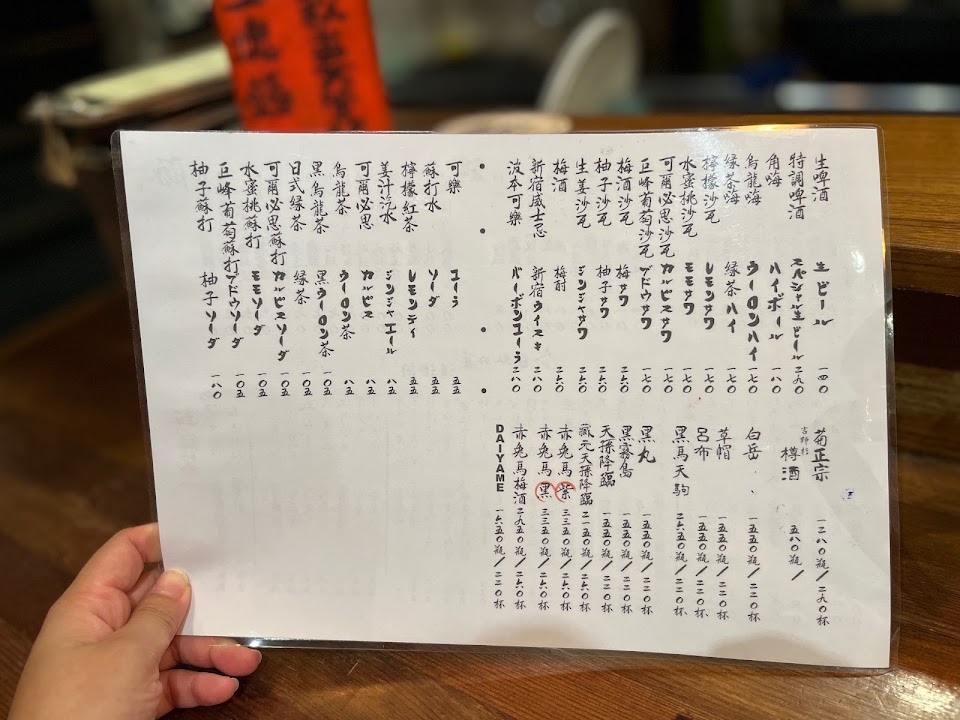 生啤酒 生ビール 一四〇
特調啤酒 スペシャル生ビール 二九〇
角嗨 ハイボール 一八〇
烏龍嗨 ウーロンハイ 一七〇
緑茶嗨 緑茶ハイ 一七〇
檸檬沙瓦 レモンサワ 一七〇
水蜜桃沙瓦 モモサワ 一七〇
可爾必思沙瓦 カルピスサワ 一七〇
巨峰葡萄沙瓦 ブドウサワ 一七〇
梅酒沙瓦 梅サワ 二六〇
柚子沙瓦 柚子サワ 二六〇
生姜沙瓦 ジンジャサワ 二六〇
梅酒 梅酎 二六〇
新宿威士忌 新宿ウイスキ 二八〇
波本可樂 バーボンコーラ 二八〇
可樂 コーラ 五五
蘇打水 ソーダ 五五
檸檬紅茶 レモンティ 五五
姜汁汽水 ジンジャエール 八五
可爾必思 カルピス 八五
烏龍茶 ウーロン茶 八五
黑烏龍茶 黑ウーロン茶 一〇五
日式緑茶 緑茶 一〇五
可爾必思蘇打 カルピスソーダ 一〇五
水蜜桃蘇打 モモソーダ 一〇五
巨峰葡萄蘇打 ブドウソーダ 一〇五
柚子蘇打 柚子ソーダ 一八〇
菊正宗 一二八〇瓶/二九〇杯
吉野杉 樽酒 五八〇瓶/
白岳 一五五〇瓶/二二〇杯
草帽 一五五〇瓶/二二〇杯
呂布 一五五〇瓶/二二〇杯
黑馬天駒 二六五〇瓶/二二〇杯
黑丸 一五五〇瓶/二二〇杯
黑霧島 一五五〇瓶/二二〇杯
天孫降臨 一五五〇瓶/二二〇杯
藏元天孫降臨 二一五〇瓶/二二〇杯
赤兔馬 紫 三三五〇瓶/二六〇杯
赤兔馬 黑 三三五〇瓶/二六〇杯
赤兔馬梅酒 二九五〇瓶/二六〇杯
DAIYAME 一六五〇瓶/二二〇杯